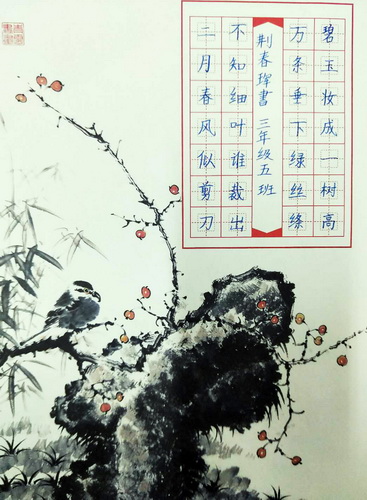 碧玉妆成一树高
万条垂下绿丝绦
荆春珲書 三年级五班
不知细叶谁裁出
二月春风似剪刀